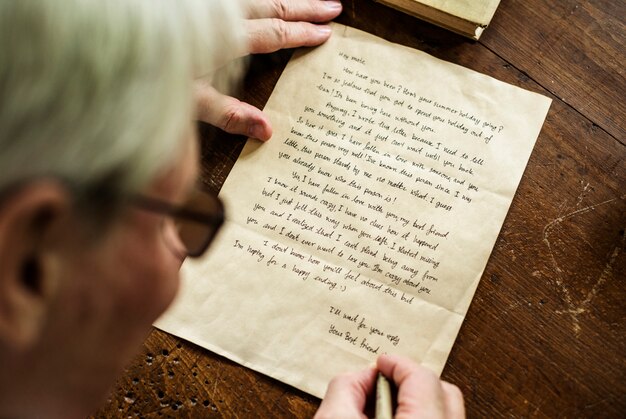 Hey mate.
How have you been? How's your summer holiday going?
I'm so jealous that you got to spend your holiday out of
town! It's been boring here without you.
Anyway, I wrote this letter because I need to tell
you something and it just can't wait until you back
So here it goes I have fallen in love with someone and you
know this person very well! I've known this person since I was
little, this person stands by me no matter what. I guess
you already know who this person is!
Yes, I have fallen in love with you, my best friend.
I know it sounds crazy, I have no clue how it happened
but I just felt this way when you left. I started missing
you and I realised that I can't stand being away from
you and I don't ever want to lose you. I'm crazy about you
I don't know how you'll feel about this but
I'm hoping for a happy ending :)
I'll wait for your reply
Your Best friend